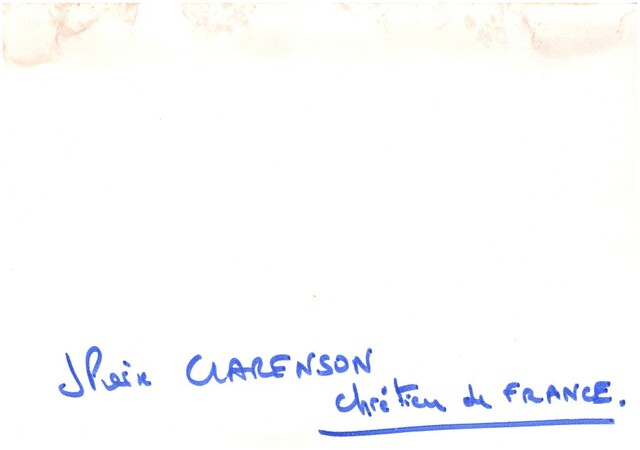 CLARENSON
chrétien de FRANCE.